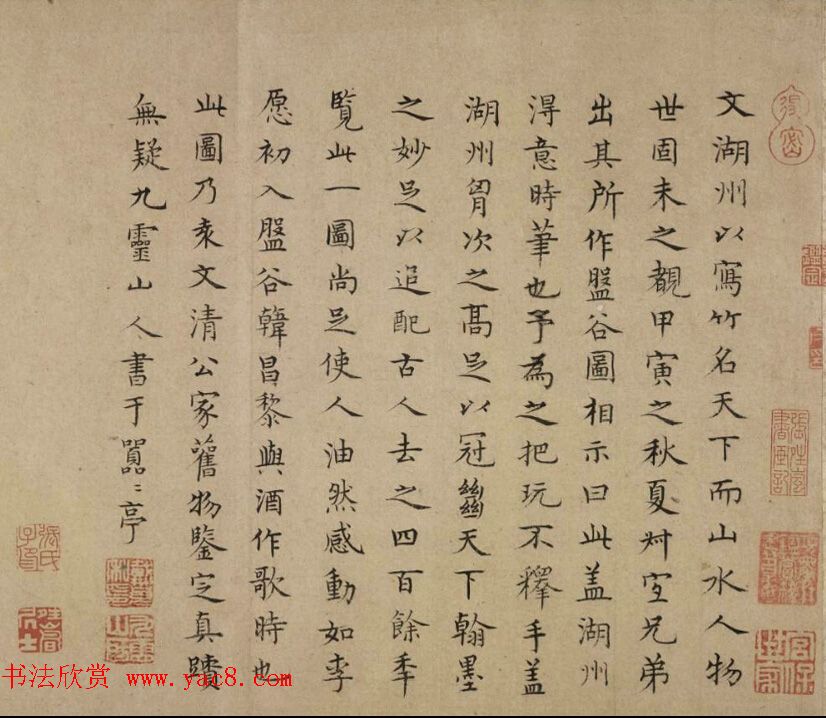 文湖州以寫竹名天下而山水人物
世固未之覩甲寅之秋夏兄弟
出其所作盤谷圖相示曰此盖湖州
得意時筆也予為之把玩不釋手盖
湖州胷次之髙足以冠絶天下翰墨
之妙足以追配古人去之四百餘年
覧此一圖尚足使人油然感動如李
愿初入盤谷韓昌黎與酒作歌時也
此圖乃袁文清公家舊物鑒定真蹟
無疑九靈山人書于囂〻亭
书法欣赏 www.yac8.com